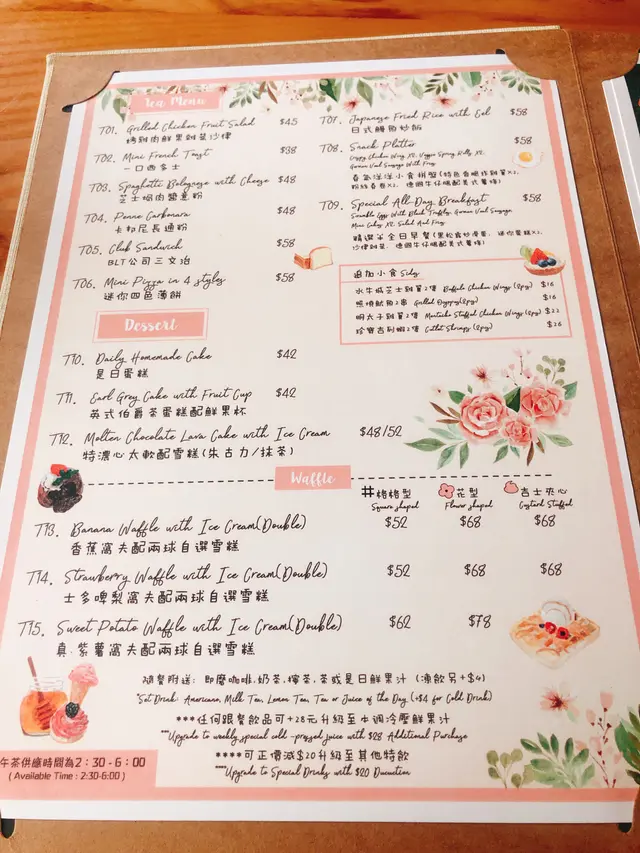 Tea Menu
T01. Grilled Chicken Fruit Salad $45
烤雞肉鮮果雜菜沙律
T02. Mini French Toast $38
一口西多士
T03. Spaghetti Bolognese with Cheese $48
芝士焗肉醬意粉
T04. Penne Carbonara $48
卡邦尼長通粉
T05. Club Sandwich $58
BLT公司三文治
T06. Mini Pizza in 4 styles $58
迷你四色薄餅
T07. Japanese Fried Rice with Eel $58
日式鰻魚炒飯
T08. Snack Platter $58
Crispy Chicken Wing X2, Veggie Spring Rolls X2,
German Veal Sausage With Fries
T09. Special All-Day Breakfast $58
Scramble Eggs With Black Truffles, German Veal Sausage,
Mini Cakes X2, Salad And Fries
追加小食 Sides
水牛城芝士雞翼2隻 Buffalo Chicken Wings (2pcs) $16
照燒魷魚2串 $16
明太子雞翼2隻 Mentaiko Stuffed Chicken Wings (2pcs) $22
珍寶吉列蝦2隻 Cutlet Shrimps (2pcs) $26
Dessert
T10. Daily Homemade Cake $42
是日蛋糕
T11. Earl Grey Cake with Fruit Cup $42
英式伯爵茶蛋糕配鮮果杯
T12. Molten Chocolate Lava Cake with Ice Cream $48/52
特濃心太軟配雪糕(朱古力/抹茶)
Waffle
格格型 花型 吉士夾心
Square shaped Flower shaped Custard Stuffed
T13. Banana Waffle with Ice Cream(Double) $52 $68 $68
香蕉窩夫配兩球自選雪糕
T14. Strawberry Waffle with Ice Cream(Double) $52 $68 $68
士多啤梨窩夫配兩球自選雪糕
T15. Sweet Potato Waffle with Ice Cream(Double) $62 $78
真.紫薯窩夫配兩球自選雪糕
隨餐附送: 即磨咖啡.奶茶.檸茶.茶或是日鮮果汁 (凍飲另+$4)
*Set Drink: Americano, Milk Tea, Lemon Tea, Tea or Juice of the Day (+$4 for Cold Drink)
***任何跟餐飲品可+28元升級至十週冷壓鮮果汁
***Upgrade to weekly special cold-pressed juice with $28 Additional Purchase
****可正價減$20升級至其他特飲
****Upgrade to Special Drinks with $20 Ducuction
午茶供應時間為2：30-6：00
(Available Time : 2:30-6:00)